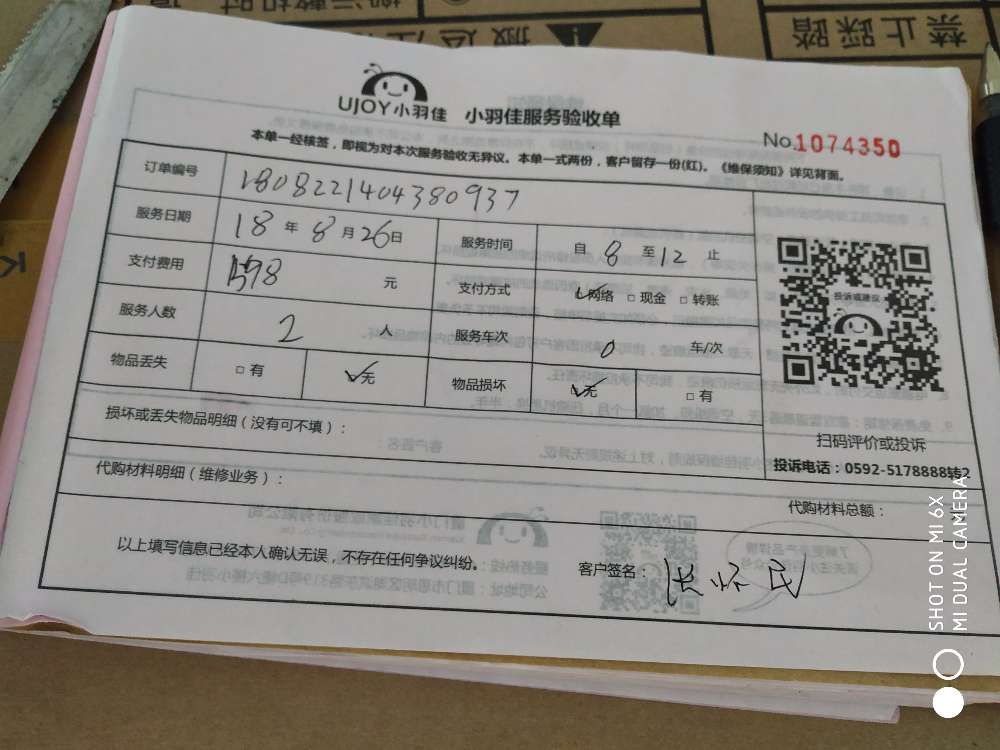 禁止踩踏
UJOY小羽佳 小羽佳服务验收单
No.1074350
本单一经核签，即视为对本次服务验收无异议。本单一式两份，客户留存一份(红)。《维保须知》详见背面。
订单编号 1808221404380937
服务日期 18 年 8 月 26 日 服务时间 自 8 至 12 止
支付费用 元 支付方式 ✓网络 □ 现金 □ 转账
服务人数 2 人 服务车次 0 车/次
物品丢失 □ 有 ✓无 物品损坏 ✓无 □ 有
投诉或建议
扫码评价或投诉
投诉电话：0592-5178888转2
损坏或丢失物品明细 (没有可不填)：
代购材料明细 (维修业务)：
代购材料总额：
以上填写信息已经本人确认无误，不存在任何争议纠纷。
客户签名：张怀民
SHOT ON MI 6X
MI DUAL CAMERA